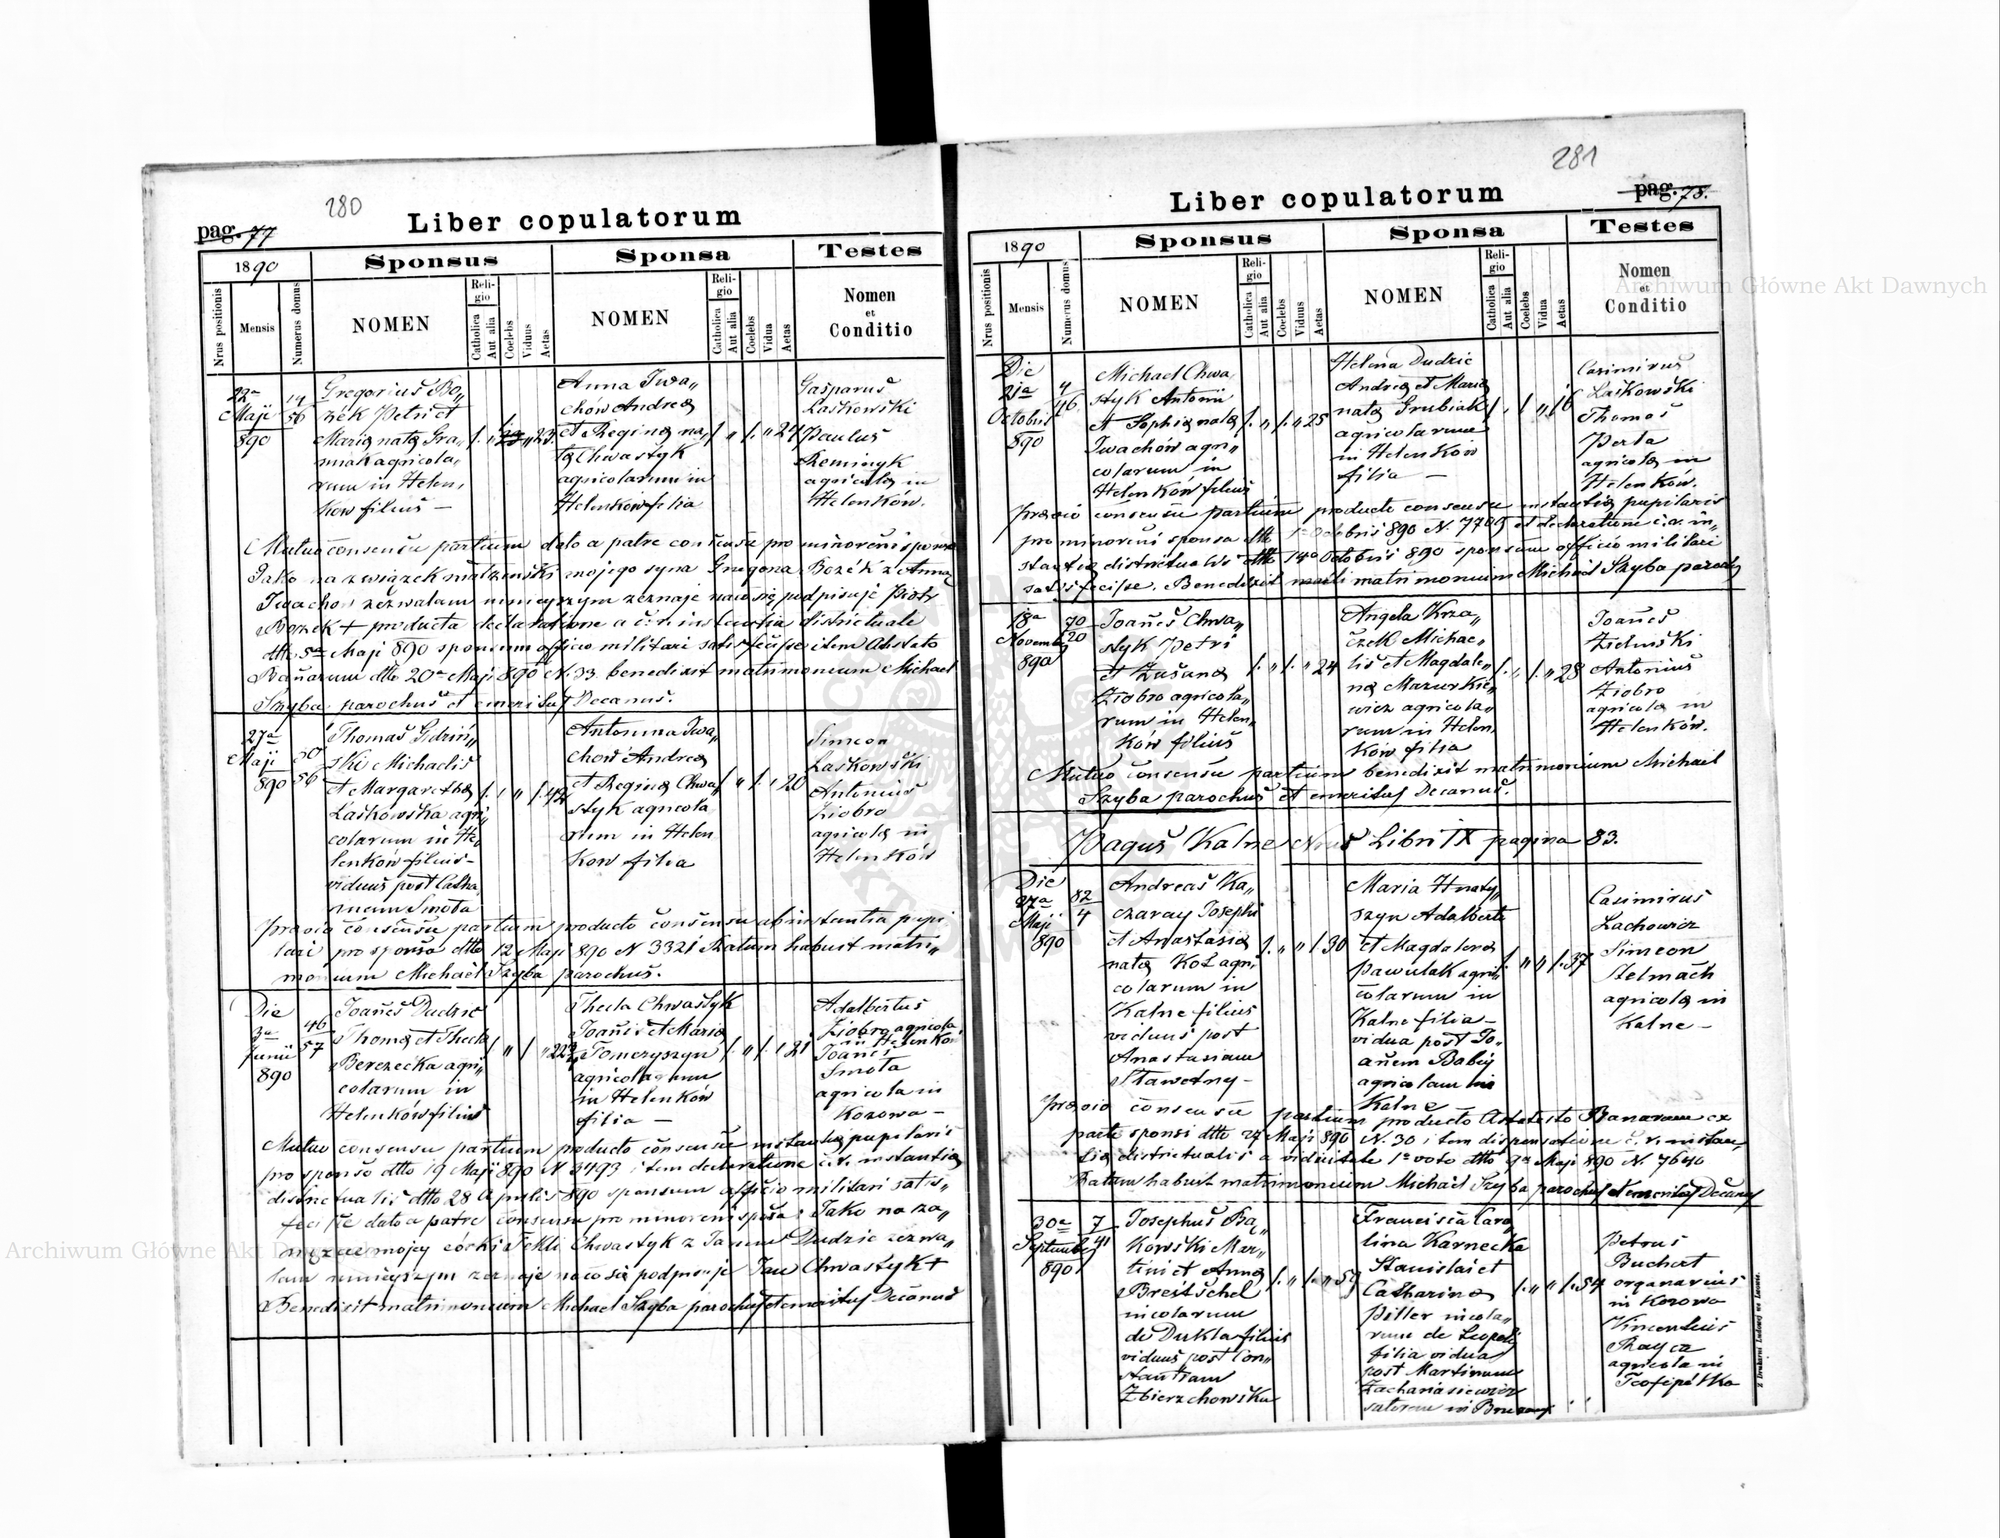 280
pag. 77
Liber copulatorum
1890
Sponsus
Sponsa
Testes
Nrus positionis
Mensis
Numerus domus
NOMEN
Religio
Catholica
Aut alia
Coelebs
Viduus
Aetas
NOMEN
Religio
Catholica
Aut alia
Coelebs
Vidua
Aetas
Nomen
et
Conditio
22a
Maji
890
14
56
Gregorius Bo„
zek Petri et
Maria nata Gra„
niak agricola„
rum in Helen„
ków filius —
23
Anna Iwa„
chów Andrea
et Regina na„
ta Chwastyk
agricolarum in
Helenków filia
24
Gasparus
Laskowski
Paulus
Reminyk
agricola in
Helenków.
Mutuo consensu partium dato a patre consensu pro minoreni sponso
Jako na związek małżenski mojego syna Gregora Bozek z Anną
Iwachow zezwalam niniejszym zeznaje na co się podpisuje Piotr
Bozek + producta declaratione a c. r. instantia districtuale
dtto 5a Maji 890 sponsum officio militari satisfecisse item Absuto
Banorum dtto 20a Maji 890 N. 33. benedixit matrimonium Michael
Szyba parochus et emeritus Decanus.
27a
Maji
890
30
56
Thomas Gdziń„
ski Michaelis
et Margaretha
Laskowska agri„
colarum in He„
lenków filius -
viduus post Catha„
rinam Smota
42
Antonina Iwa„
chow Andrea
et Regina Chwa„
styk agricola
rum in Helen
kow filia
20
Simeon
Laskowski
Antonius
Ziobro
agricola in
Helenków
Praevio consensu partium producto consensu ab instantia pupi„
lari pro sponsa dtto 12 Maji 890 N 3321 Ratum habuit matri„
monium Michael Szyba parochus.
Die
3a
Junii
890
46
57
Joanes Dudzic
Thoma et Thecla
Berezecka agri„
colarum in
Helenków filius
22
Thecla Chwastyk
Joanis et Maria
Tomczyszyn
agricolarum
in Helenków
filia —
21
Adalbertus
Ziobro agricola
in Helenków
Joanes
Smota
agricola in
Kozowa —
Mutuo consensu partium producto consensu instantia pupilaris
pro sponso dtto 19 Maji 890 N 3493 item declaratione c. r. instantia
districtualis dtto 28 Aprilis 890 sponsum officio militari satis„
fecisse dato a patre consensu pro minoreni sponsa: Jako na za„
męzcie mojej córki Tekli Chwastyk z Janem Dudzic zezwa„
lam niniejszym zeznaje na co się podpisuje Jan Chwastyk +
Benedixit matrimonium Michael Szyba parochus et emeritus Decanus
281
Liber copulatorum
pag. 78.
1890
Sponsus
Sponsa
Testes
Nrus positionis
Mensis
Numerus domus
NOMEN
Religio
Catholica
Aut alia
Coelebs
Viduus
Aetas
NOMEN
Religio
Catholica
Aut alia
Coelebs
Vidua
Aetas
Nomen
et
Conditio
Die
21a
Octobris
890
4
46
Michael Chwa
styk Antoni
et Sophia nata
Iwachów agri„
colarum in
Helenków filius
25
Helena Dudzic
Andrea et Maria
nata Grubiak
agricolarum
in Helenków
filia —
16
Casimirus
Laskowski
Thomas
Perta
agricola in
Helenków.
Praevio consensu partium producto consensu instantia pupilaris
pro minoreni sponsa dtto 1a Octobris 890 N. 7709 et declaratione c. r. in„
stantia districtualis dtto 14a Octobris 890 sponsum officio militari
satisfecisse. Benedixit matrimonium Michael Szyba parochus
18a
Novembr
890
70
20
Joanes Chwa„
styk Petri
et Zusana
Ziobro agricola„
rum in Helen„
ków filius
24
Angela Krza„
czek Michae„
lis et Magdale„
na Mazurkie„
wicz agricola„
rum in Helen
ków filia
28
Joanes
Zielinski
Antonius
Ziobro
agricola in
Helenków.
Mutuo consensu partium benedixit matrimonium Michael
Szyba parochus et emeritus Decanus.
Pagus Kalne Nrus Libri IX pagina 83.
Die
27a
Maji
890
82
4
Andreas Ka„
czaray Josephi
et Anastasia
nata Koz agri„
colarum in
Kalne filius
viduus post
Anastasiam
Stawetny -
30
Maria Hnaty„
szyn Adalberti
et Magdalena
Pawulak agri„
colarum in
Kalne filia -
vidua post Jo„
anem Babij
agricolam in
Kalne
37
Casimirus
Lachowicz
Simeon
Stelmach
agricola in
Kalne —
Praevio consensu partium producto Absuto Banorum ex
parte sponsi dtto 27 Maji 890 N. 30 item dispensatione c. r. instan„
tia districtualis a viduitate 1o voto dtto 9a Maji 890 N. 7640
Ratum habuit matrimonium Michael Szyba parochus et emeritus Decanus
30a
Septembr
890
7
41
Josephus Bą„
kowski Mar„
tini et Anna
Breitschel
nicolarum
de Dukla filius
viduus post Con„
stantiam
Zbierzchowska
59
Francisca Caro„
lina Karnecka
Stanislai et
Catharina
Piller nicola„
rum de Leopoli
filia vidua
post Martinum
Zachariasiewicz
54
Petrus
Buchert
organarius
in Kozowa
Vincentius
Rayca
agricola in
Teofipółka
Z Drukarni Ludowej we Lwowie.
Archiwum Główne Akt Dawnych
Archiwum Główne Akt Dawnych